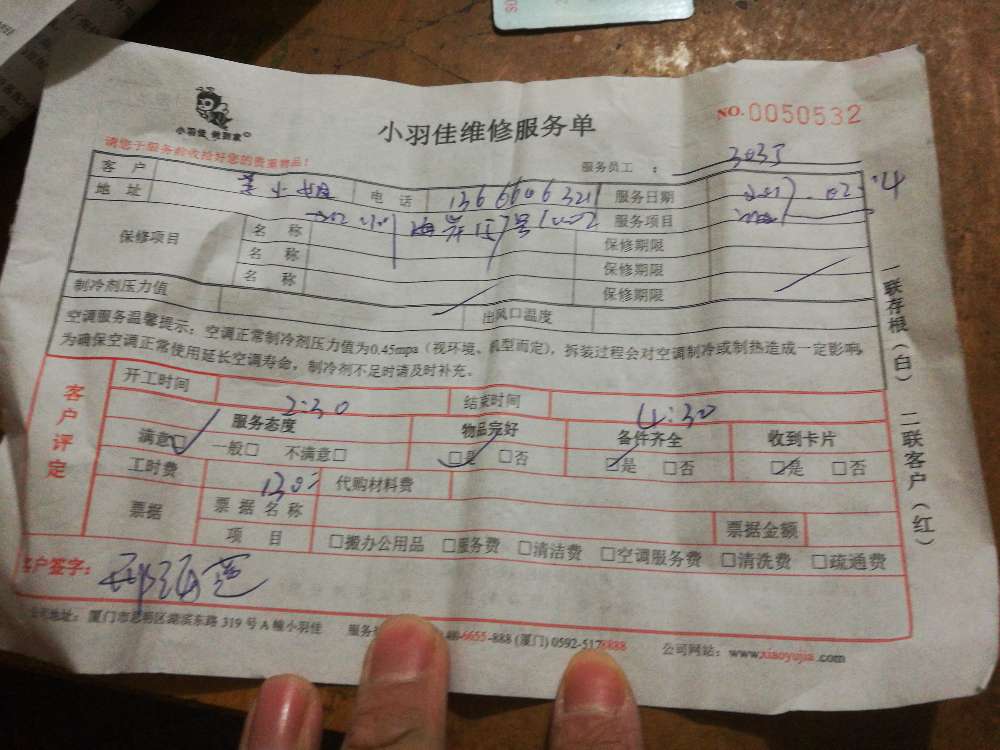 小羽佳 快到家
小羽佳维修服务单
NO. 0050532
请您于服务前收拾好您的贵重物品!
服务员工:
客户 电话 1366606321 服务日期
地址 服务项目
保修项目 名称 保修期限
名称 保修期限
名称 保修期限
制冷剂压力值 出风口温度
空调服务温馨提示:空调正常制冷剂压力值为0.45mpa(视环境、机型而定),拆装过程会对空调制冷或制热造成一定影响,
为确保空调正常使用延长空调寿命,制冷剂不足时请及时补充。
客户评定
开工时间 2:30 结束时间 4:30
服务态度 物品完好 备件齐全 收到卡片
满意☑ 一般□ 不满意□ ☑是 □否 ☑是 □否 ☑是 □否
工时费 130 代购材料费
票据 票据名称 票据金额
项目 □搬办公用品 □服务费 □清洁费 □空调服务费 □清洗费 □疏通费
客户签字:
地址:厦门市思明区湖滨东路319号A幢小羽佳 服务 6655-888(厦门)0592-517 8888 公司网站:www.xiaoyujia.com
一联存根(白) 二联客户(红)